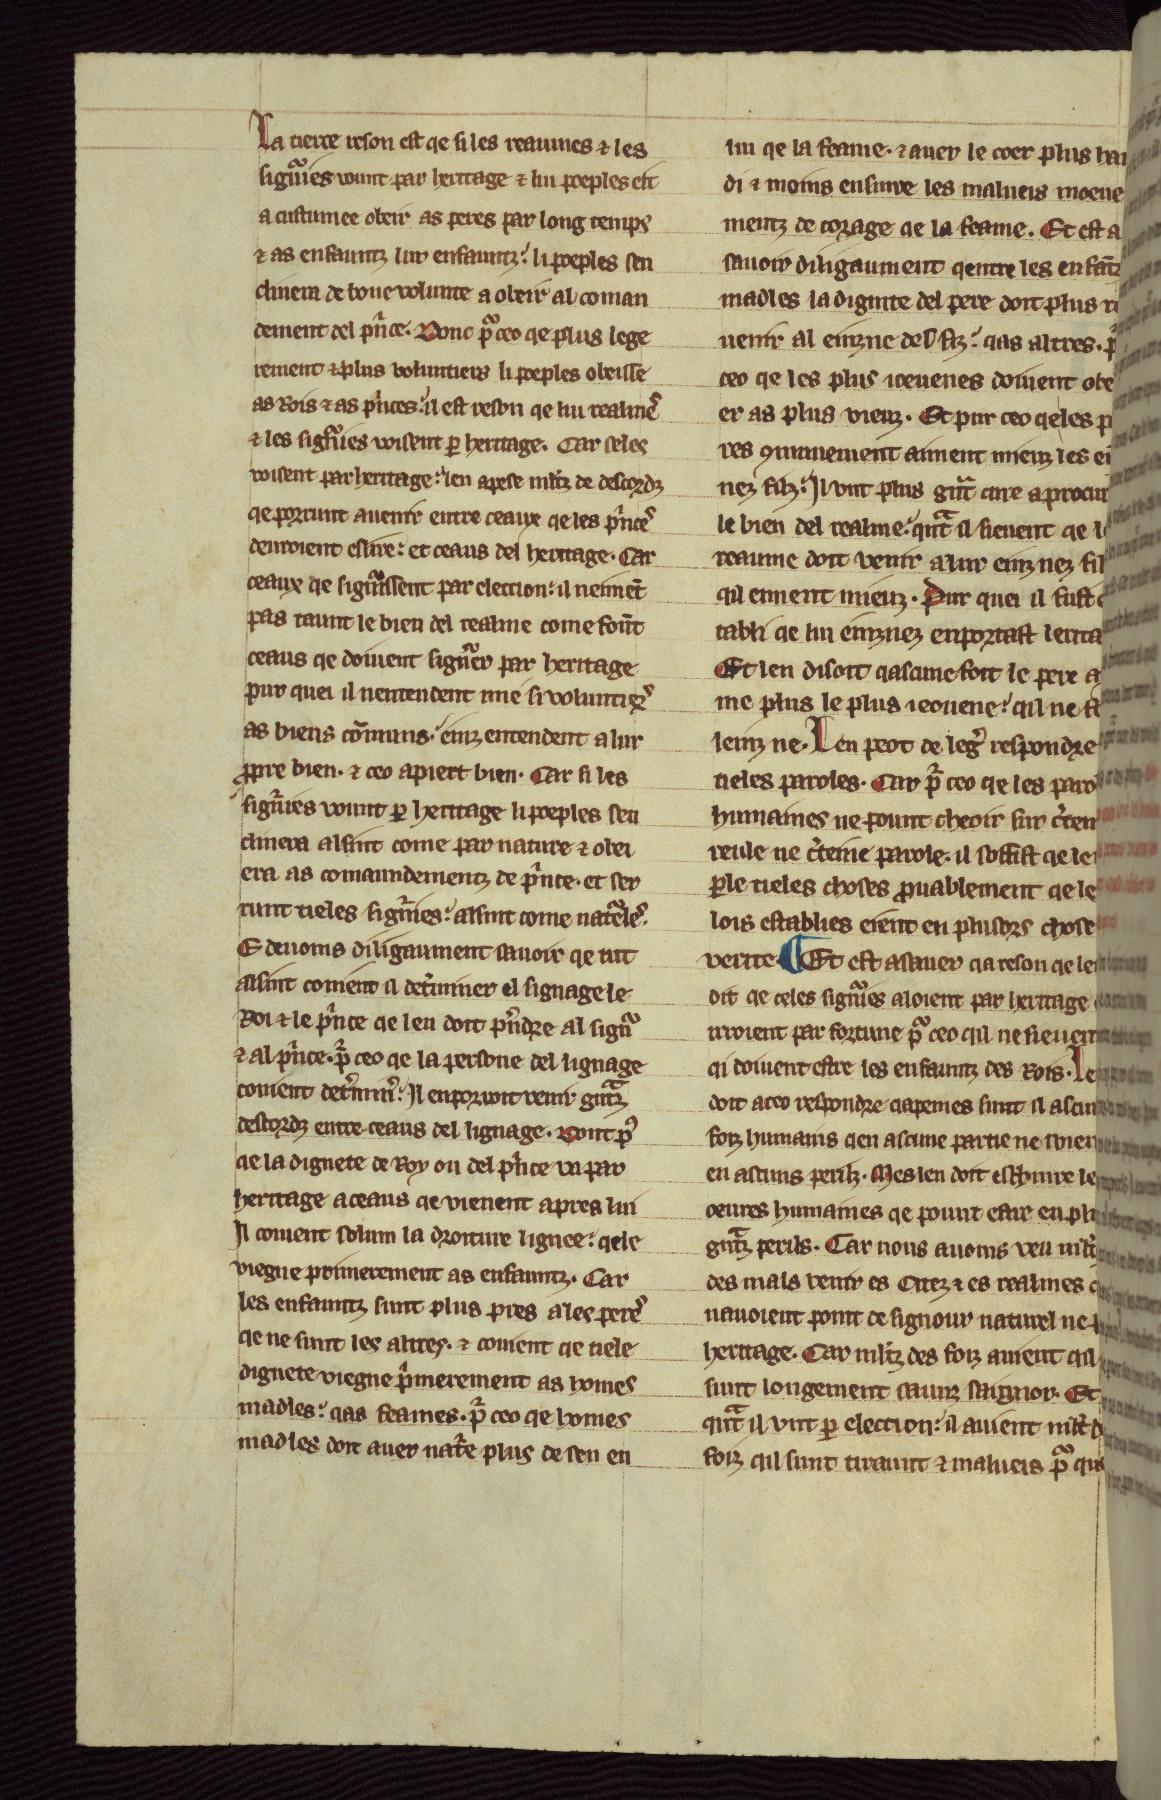 La tierce reson est qe si les reaumes ⁊ les
signͣuies vount par heritage ⁊ lui poeples eit
acustumee obeir as peres par long temps
⁊ as enfauntz lur enfauntz: li poeples sen
clinera de boue volunte a obeir al coman
dement del pͥnce. Donc pͬ ceo qe plus lege
rement ⁊ plus voluntiers li poeples obeisse
as Rois ⁊ as pͥnces: il est reson qe lui realmes
⁊ les signͣuies voisent ꝑ heritage. Car seles
voisent par heritage: len apese mltz de descordz
qe porrunt auenir entre ceaux qe les pͥnces
deuroient eslire: et ceaus del heritage. Car
ceaux qe signͬissent par eleccion: il neiment
pas taunt le bien del realme come fount
ceaus qe doiuent signͬer par heritage
pur quei il nentendent mie si voluntiers
as biens cōmuns. einz entendent a lur
ꝓpre bien. ⁊ ceo apiert bien. Car si les
signͬies vount ꝑ heritage li poeples sen
clinera alsint come par nature ⁊ obei
era as comaundementz de pͥnce. et ser
runt tieles signͬies: alsint come natͬeles.
E deuoms diligaument sauoir qe tut
alsint couient il det̄miner el lignage le
Roi ⁊ le pͥnce qe len doit pͬndre al signͬ
⁊ al pͥnce. pͬ ceo qe la persone del lignage
couient det̄miñ: Il enporroit venir gͣntz
descordz entre ceaus del lignage. Dont pͬ
qe la dignete de Roy ou del pͥnce va par
heritage a ceaus qe vienent apres lui
Il couient solum la droiture lignee: qele
viegne primerement as enfauntz. Car
les enfauntz sunt plus pres a les peres
qe ne sunt les altres. ⁊ couient qe tiele
dignete viegne pͥmerement as homes
madles: qas feames. pͬ ceo qe homes
madles doit auer natͬe plus de sen en
lui qe la feame. ⁊ auer le coer plus har
di ⁊ moins ensuire les malueis moeue
mentz de corage qe la feame. Et est a
sauoir diligaument qentre les enfātz
madles la dignite del pere doit plus
uenir al einzne del fiz: qas altres. pͬ
ceo qe les plus ieuenes doiuent obe
er as plus vieuz. Et pur ceo qe les p
res ꝯmunement aiment mieuz les ei
nez fiz: Il unt plus gͣnt cure a procur
le bien del realme: qͣnt il sieuent qe l
reaume doit venir a lur einznez fil
qil eiment mieuz. Pur quei il fust e
tabli qe lui einznez enportast lerita
Et len disoit qascune foit le pere a
me plus le plus ieouene: qil ne f
leinz ne. Len peot de legͬ respondre
tieles paroles. Car pͬ ceo qe les paro
humaines ne pount cheoir sur c̄ten
reule ne c̄teine parole. il soffist qe le
ꝑle tieles choses ꝓuablement qe le
lois establies eient en plusors chose
verite. Et est asauer qa reson qe le
dit qe celes signͬies aloient par heritage
uroient par fortune pͬ ceo qil ne sieuent
qi doiuent estre les enfauntz des Rois. Le
doit a ceo respondre qapeines sunt il ascun
foiz humains qen ascune partie ne soien
en ascuns perilz. Mes len doit eschiuire le
oeures humaines qe pount estre en pl
gͣntz perils. Car nous auoms veu mltz
des mals venir es Citez ⁊ es realmes q
nauoient point de signour naturel ne p
heritage. Car mltz des foiz auient qil
sunt longement saunz saignor. Et
qͣnt il unt ꝑ eleccion: il auient mlt d
foiz qil sunt tiraunt ⁊ malueis pͬ que